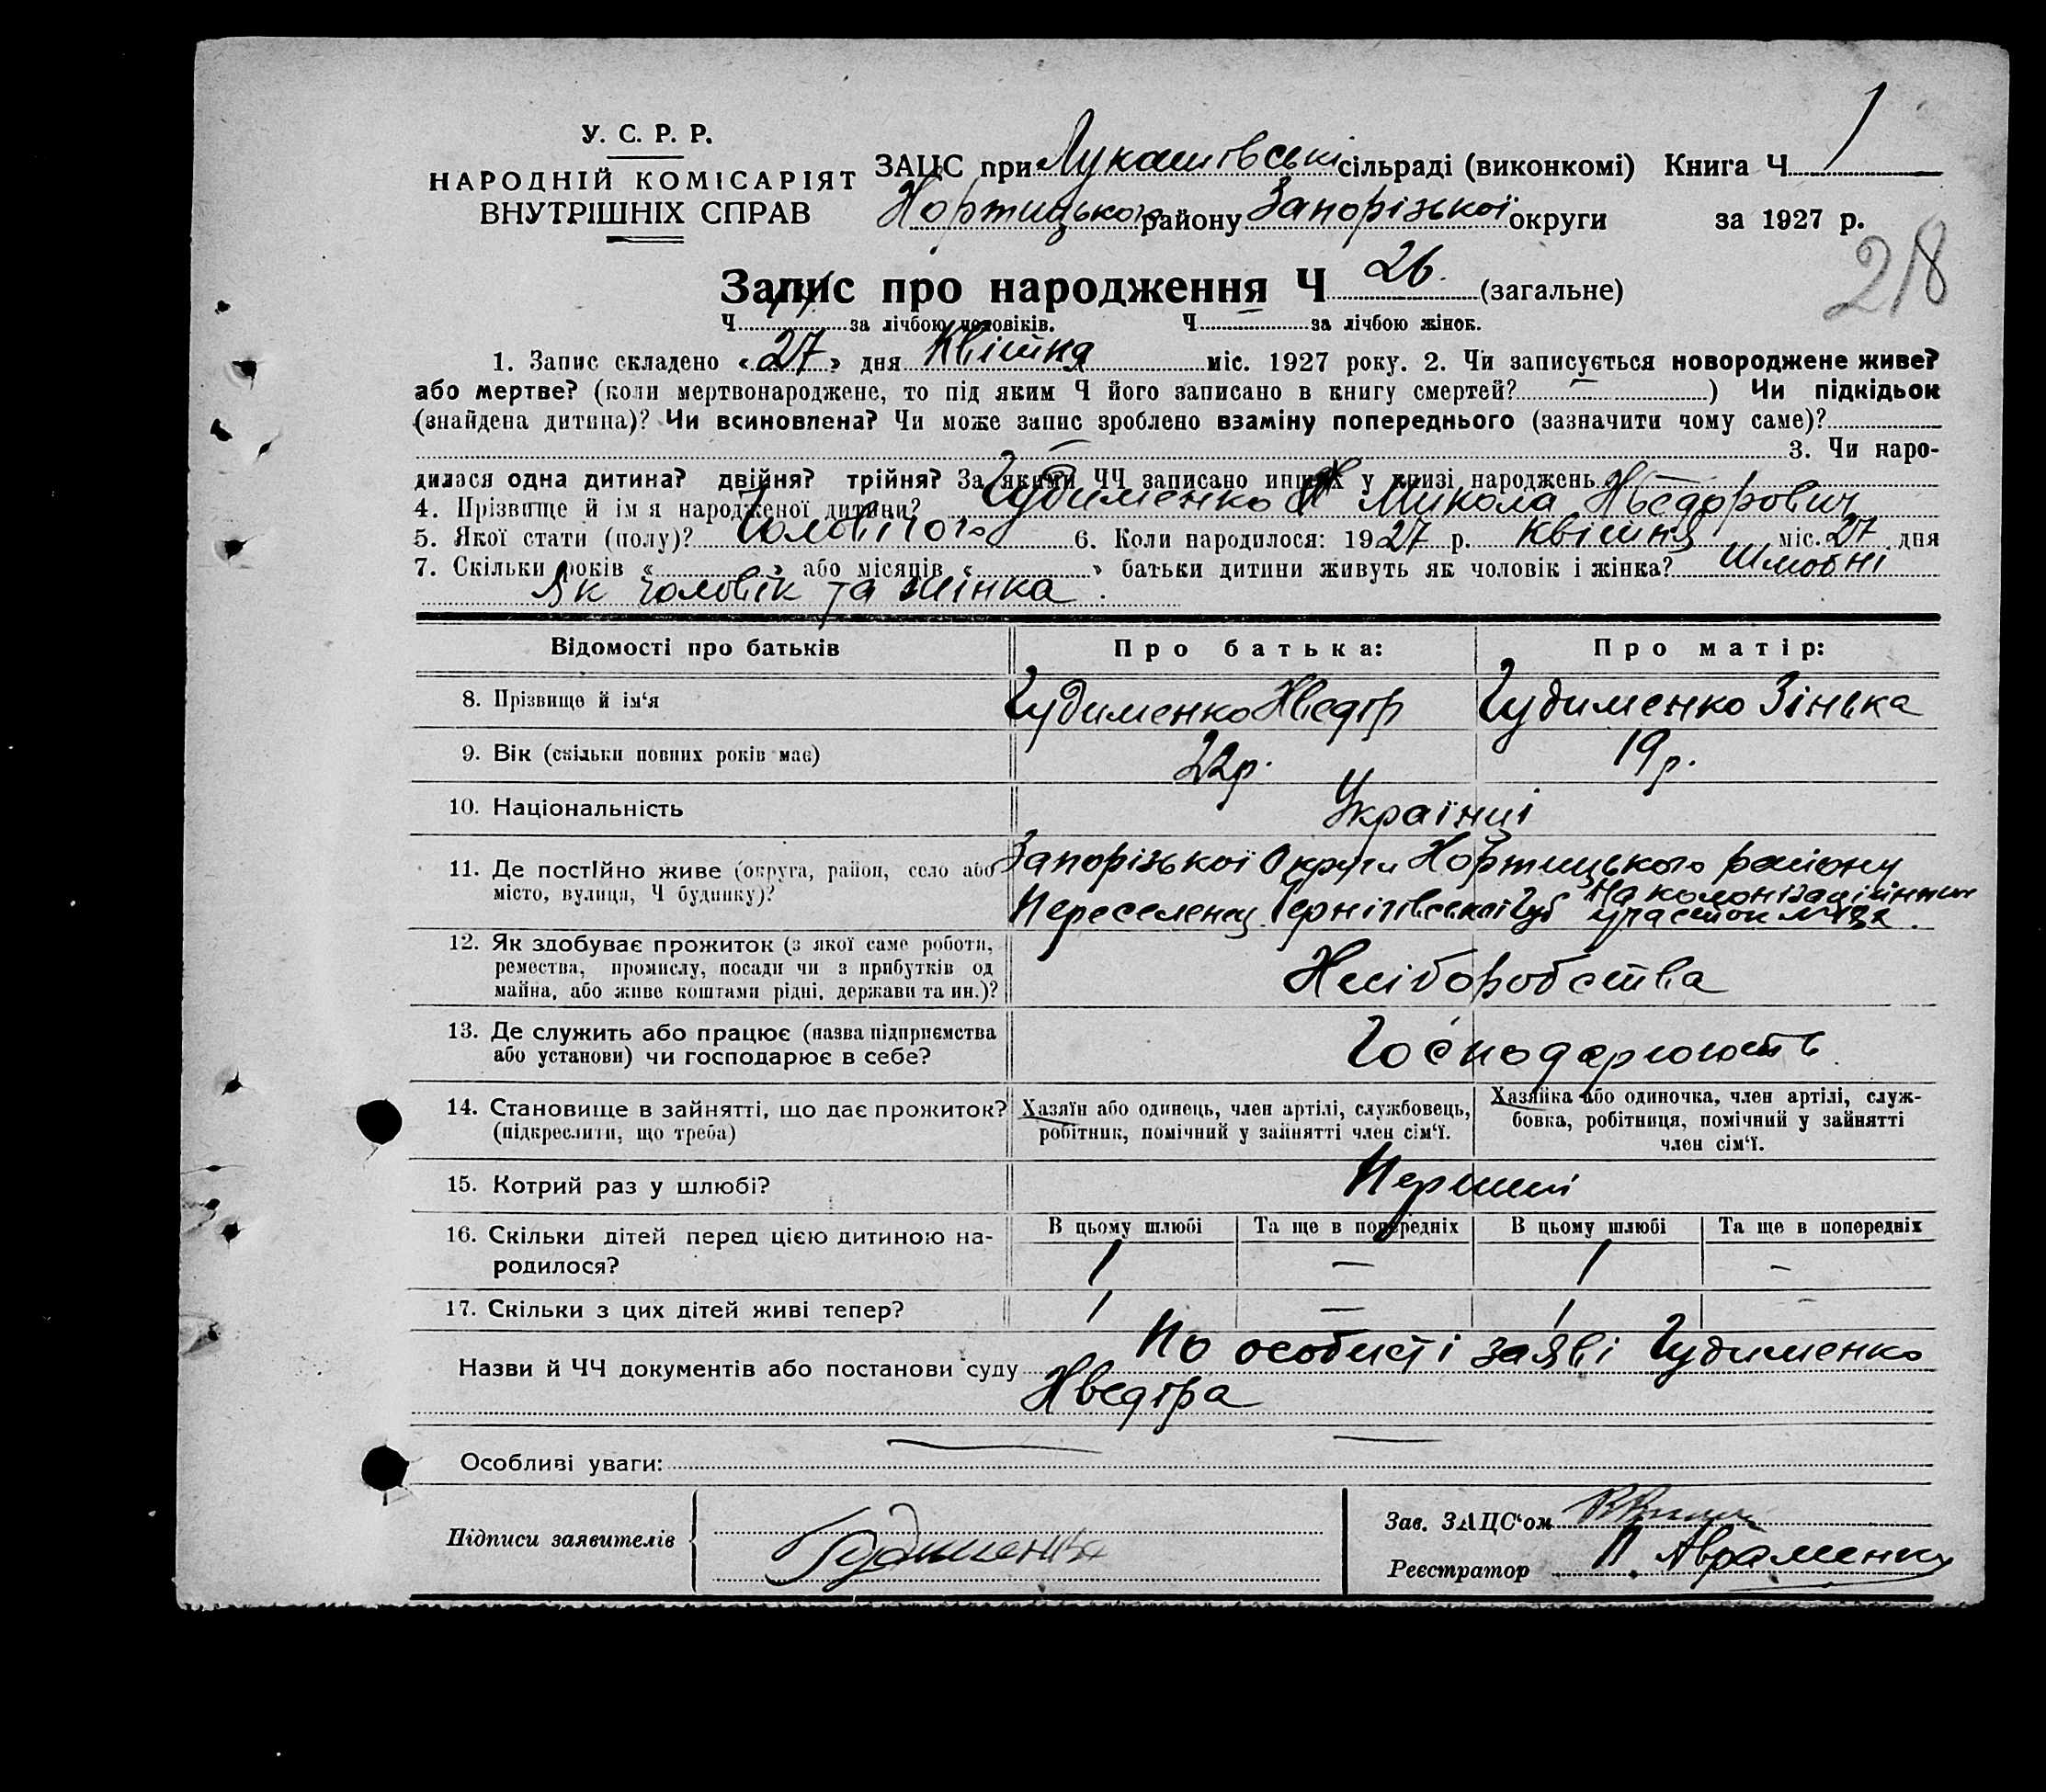 У. С. Р. Р.
НАРОДНІЙ КОМІСАРІЯТ
ВНУТРІШНІХ СПРАВ
ЗАЦС при Лукашівські сільраді (виконкомі) Книга Ч 1
Хортицького району Запорізької округи за 1927 р.
218
Запис про народження Ч 26. (загальне)
Ч за лічбою чоловіків. Ч — за лічбою жінок.
1. Запис складено « 27 » дня Квітня міс. 1927 року. 2. Чи записується новороджене живе?
або мертве? (коли мертвонароджене, то під яким Ч його записано в книгу смертей? — ) Чи підкідьок
(знайдена дитина)? Чи всиновлена? Чи може запис зроблено взаміну попереднього (зазначити чому саме)?
3. Чи наро-
дилася одна дитина? двійня? трійня? За якими ЧЧ записано инших у книзі народжень
4. Прізвище й ім'я народженої дитини? Гудименко Микола Хведорович
5. Якої стати (полу)? Чоловічого 6. Коли народилося: 1927 р. квітня міс. 27 дня
7. Скільки років « » або місяців « » батьки дитини живуть як чоловік і жінка? Шлюбні
Як чоловік та жінка.
Відомості про батьків Про батька: Про матір:
8. Прізвище й ім'я Гудименко Хведір Гудименко Зінька
9. Вік (скільки повних років має) 22р. 19р.
10. Національність Українці
11. Де постійно живе (округа, район, село або Запорізької Округи Хортицького району
місто, вулиця, Ч будинку)? Переселенец Чернігівської Губ На колонізаційним участок
12. Як здобуває прожиток (з якої саме роботи,
ремества, промислу, посади чи з прибутків од Хліборобства
майна, або живе коштами рідні, держави та ин.)?
13. Де служить або працює (назва підприємства
або установи) чи господарює в себе? Господарюють
14. Становище в зайнятті, що дає прожиток?
(підкреслити, що треба)
Хазяїн або одинець, член артілі, службовець,
робітник, помічний у зайнятті член сім'ї.
Хазяйка або одиночка, член артілі, служ-
бовка, робітниця, помічний у зайнятті
член сім'ї.
15. Котрий раз у шлюбі? Перший
16. Скільки дітей перед цією дитиною на-
родилося?
В цьому шлюбі Та ще в попередніх В цьому шлюбі Та ще в попередніх
1 — 1 —
17. Скільки з цих дітей живі тепер? 1 — 1 —
Назви й ЧЧ документів або постанови суду По особисті заяві Гудименко
Хведіра
Особливі уваги:
Підписи заявителів Гудименко
Зав. ЗАЦС'ом
Реєстратор П. Авраменко